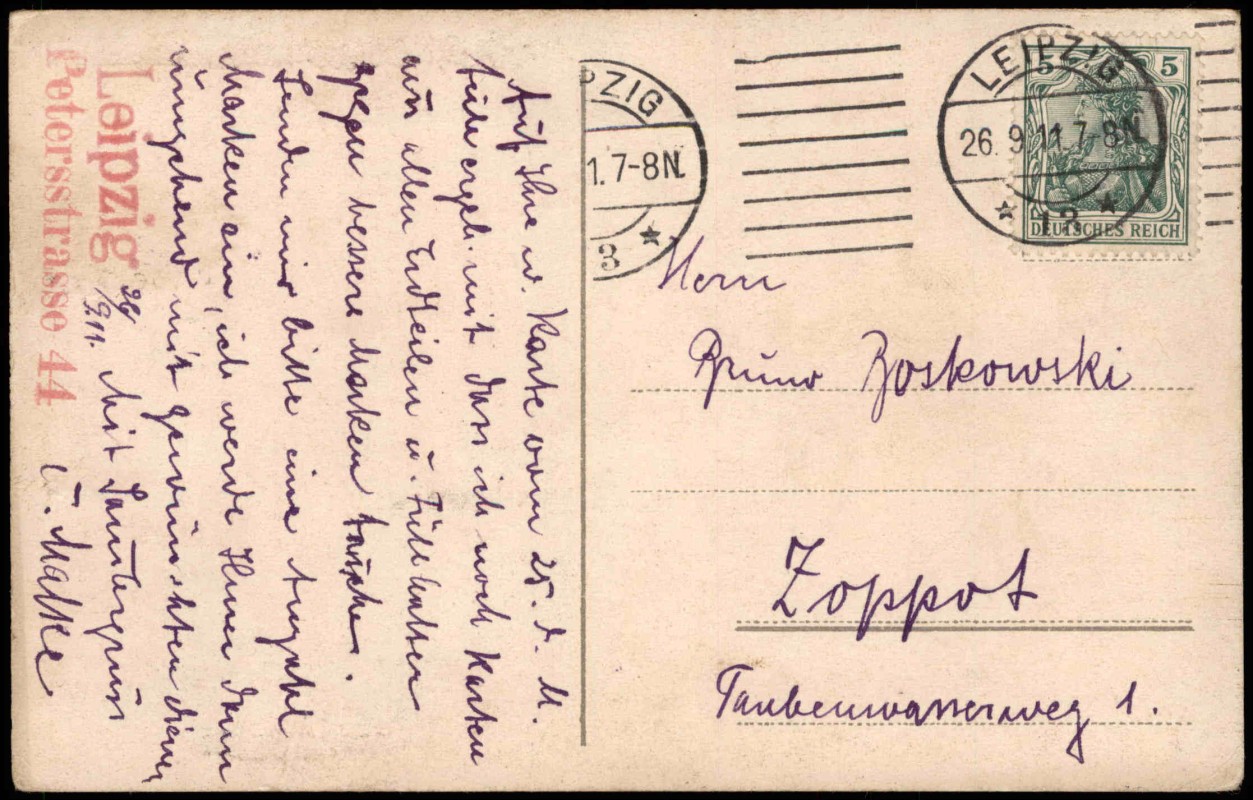 Auf Ihre w. Karte vom 25. d. M.
teile ergeb. mit dass ich noch Karten
aus allen Erdteilen u.
gegen bessere Marken tausche.
Senden mir bitte eine Anzahl
Marken ein, ich werde Ihnen dann
umgehend mit gewünschten dienen
Mit Sammlergruss
Matke
26/9.11.
Leipzig
Petersstrasse 44
PZIG
1.7-8N.
LEIPZIG
26.9.11.7-8N.
* 13 *
5 5
DEUTSCHES REICH
Herrn
Bruno Boskowski
Zoppot
Taubenwasserweg 1.